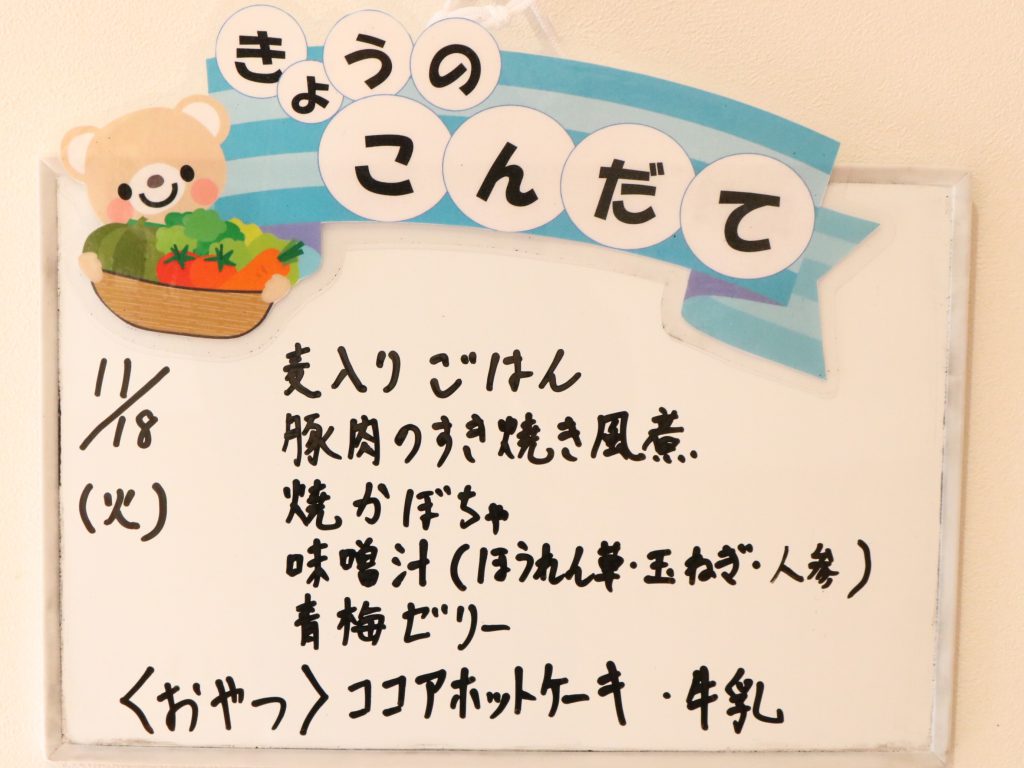 きょうの
こんだて
11/18
(火)
麦入りごはん
豚肉のすき焼き風煮
焼かぼちゃ
味噌汁(ほうれん草・玉ねぎ・人参)
青梅ゼリー
〈おやつ〉ココアホットケーキ・牛乳